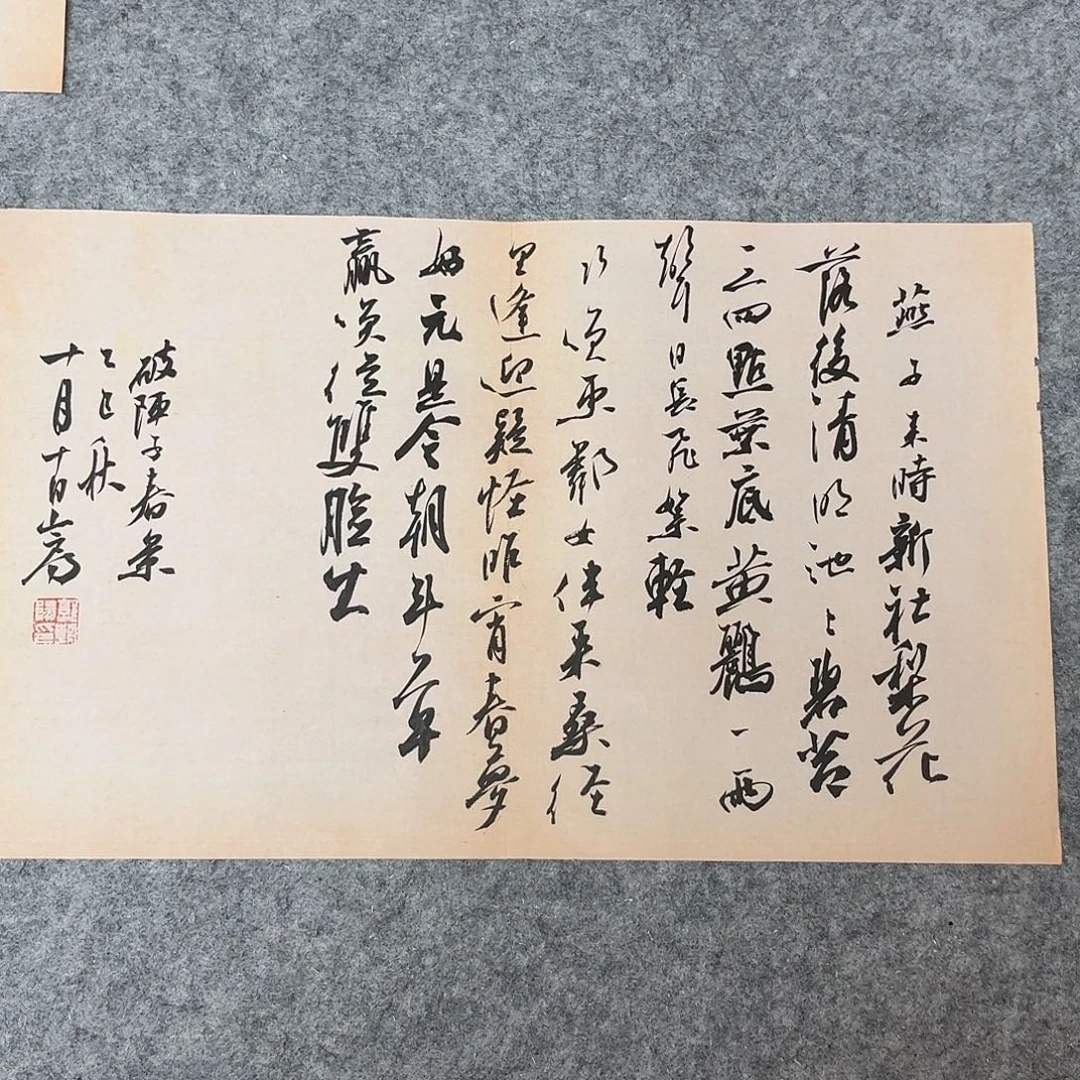 燕子来時新社梨花
落後清明池上碧苔
三四點葉底黄鸝一兩
聲日長飛絮軽
巧笑東鄰女伴采桑径
里逢迎疑怪昨宵春夢
好元是今朝斗草
赢笑從雙臉生
破陣子春景
乙巳秋
十月十日